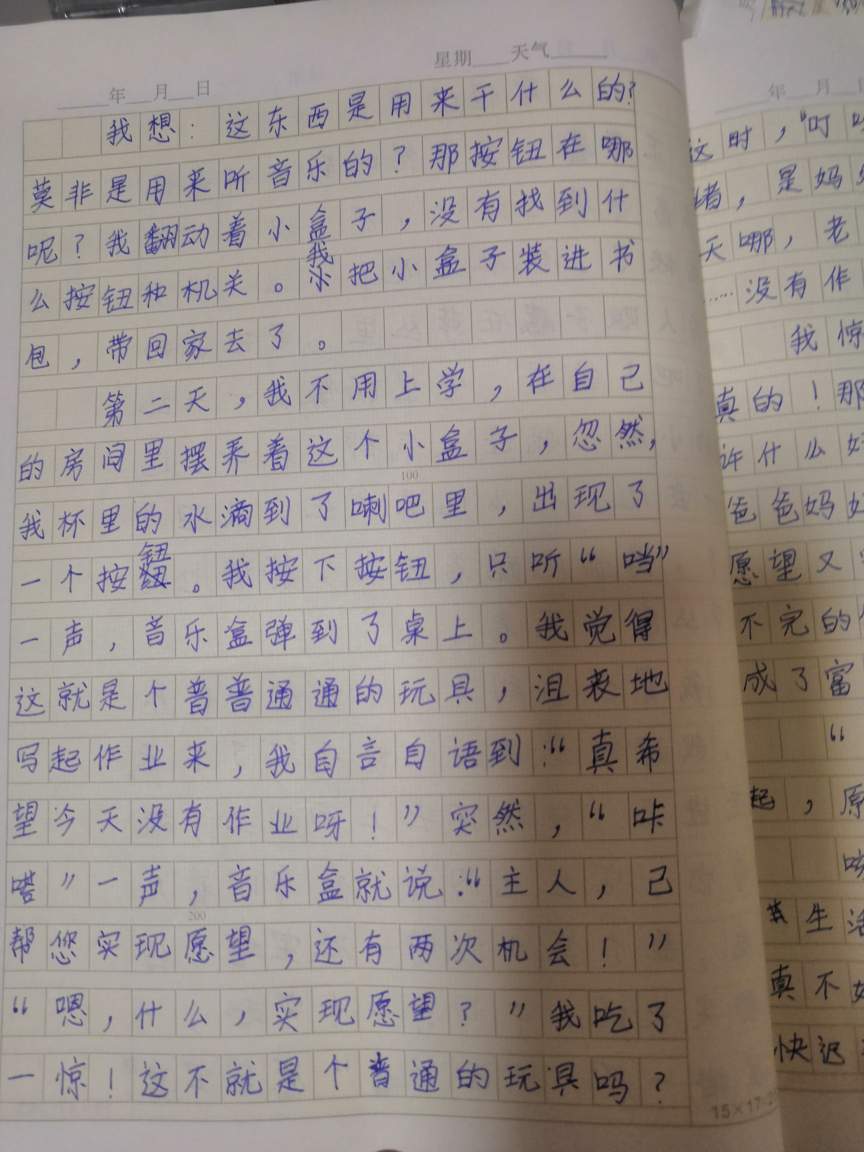 年 月 日 星期 天气
我想：这东西是用来干什么的？
莫非是用来听音乐的？那按钮在哪
呢？我翻动着小盒子，没有找到什
么按钮和机关。我把小盒子装进书
包，带回家去了。
第二天，我不用上学，在自己
的房间里摆养着这个小盒子，忽然，
100
我杯里的水滴到了喇吧里，出现了
一个按钮。我按下按钮，只听“哨”
一声，音乐盒弹到了桌上。我觉得
这就是个普普通通的玩具，沮丧地
写起作业来，我自言自语到：“真希
望今天没有作业呀！”突然，“咔
嗒”一声，音乐盒就说：“主人，己
200
帮您实现愿望，还有两次机会！”
“嗯，什么，实现愿望？”我吃了
一惊！这不就是个普通的玩具吗？
15×17=2
年 月 日
这时，“叮
绪，是妈
天哪，老
……没有作
我惊
真的！那
许什么好
爸爸妈妈
愿望又
不完的
成了富
“
起，原
生活
真不好
快迟